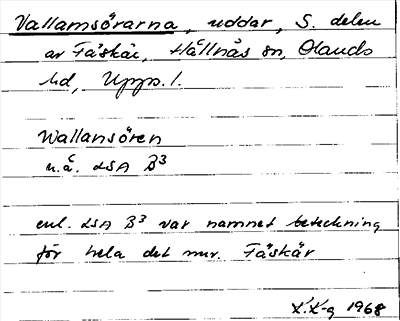 Vallamsörarna, uddar, S. delen
av Fäskär, Hållnäs sn, Olands
hd, Upps. l.
Wallansören
n.å. LSA B³
enl. LSA B³ var namnet beteckning
för hela det nuv. Fäskär
K.K-g 1968